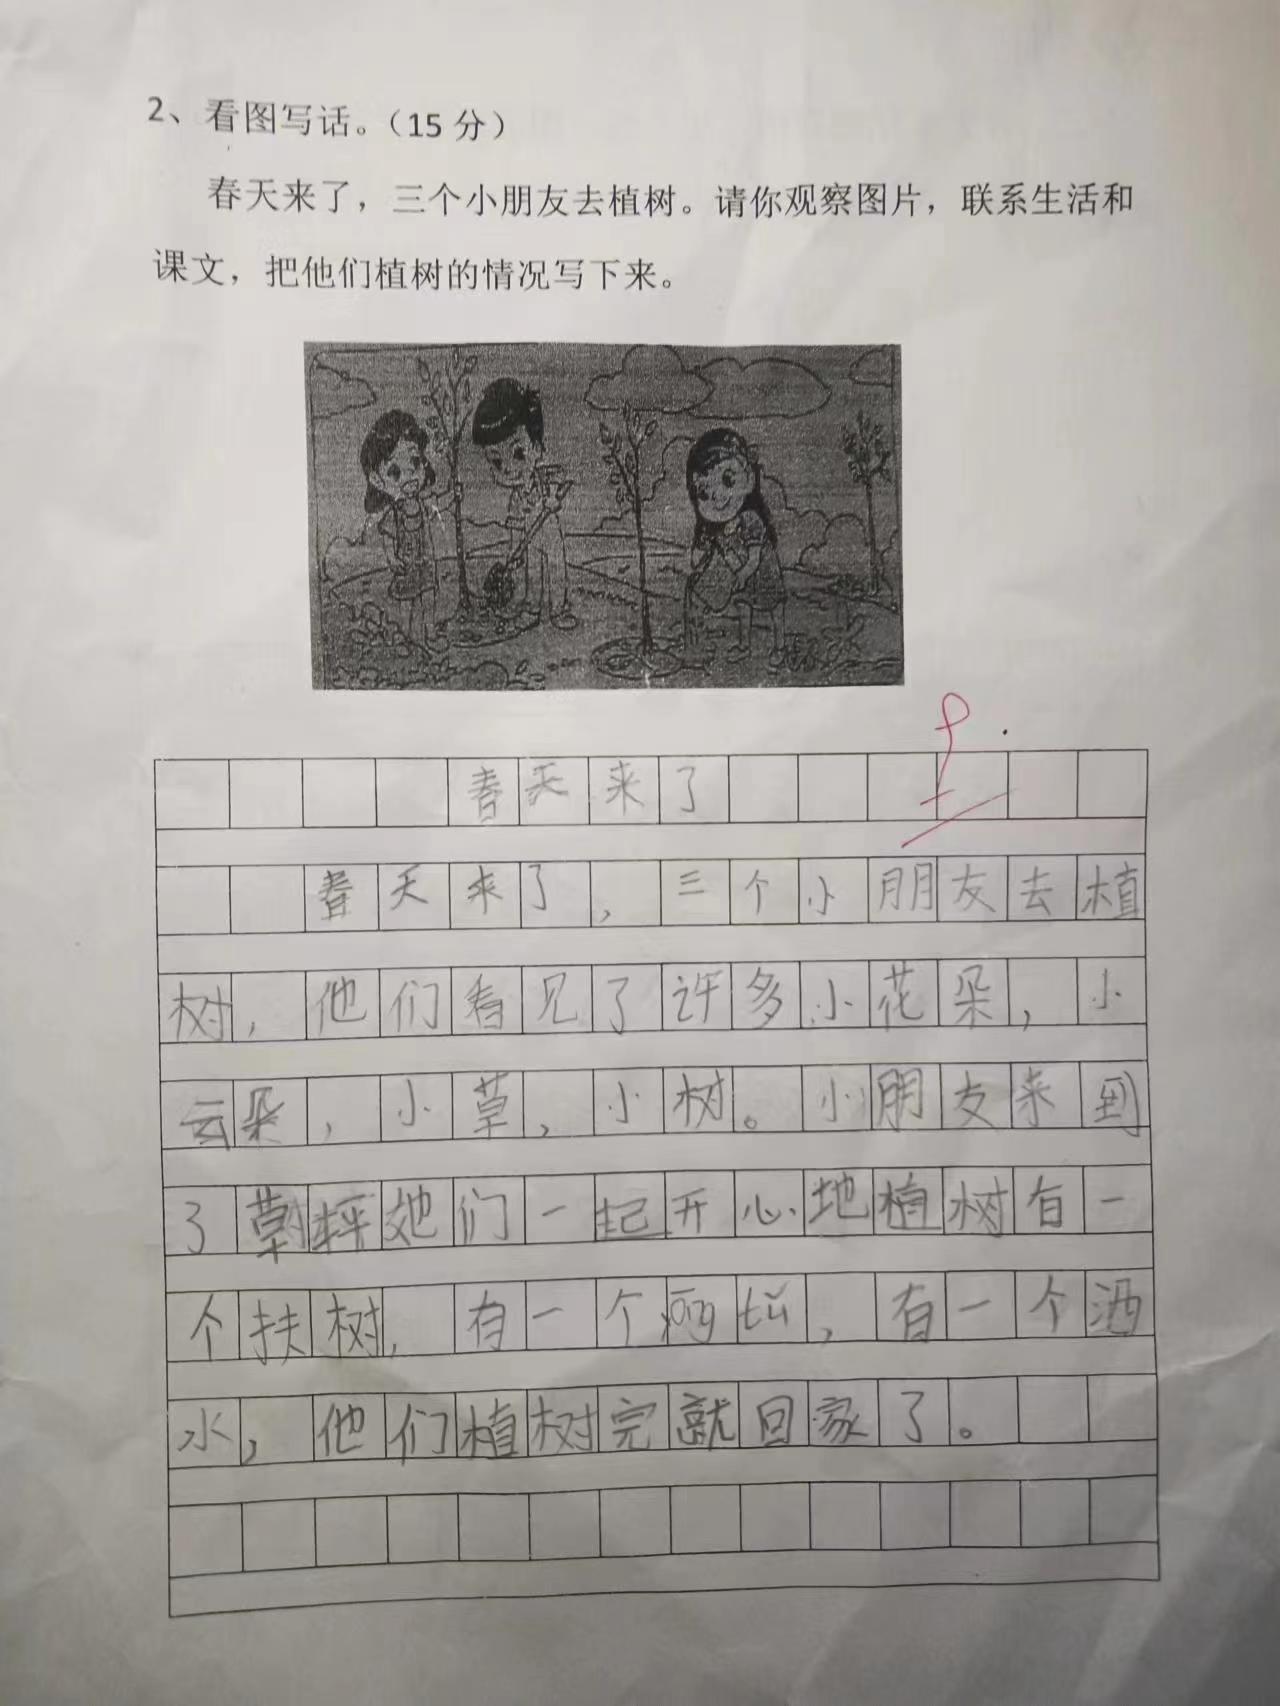 2、看图写话。（15 分）
春天来了，三个小朋友去植树。请你观察图片，联系生活和
课文，把他们植树的情况写下来。
春天来了
春天来了，三个小朋友去植
树，他们看见了许多小花朵，小
云朵，小草，小树。小朋友来到
了草坪她们一起开心地植树有一
个扶树，有一个，有一个洒
水，他们植树完就回家了。